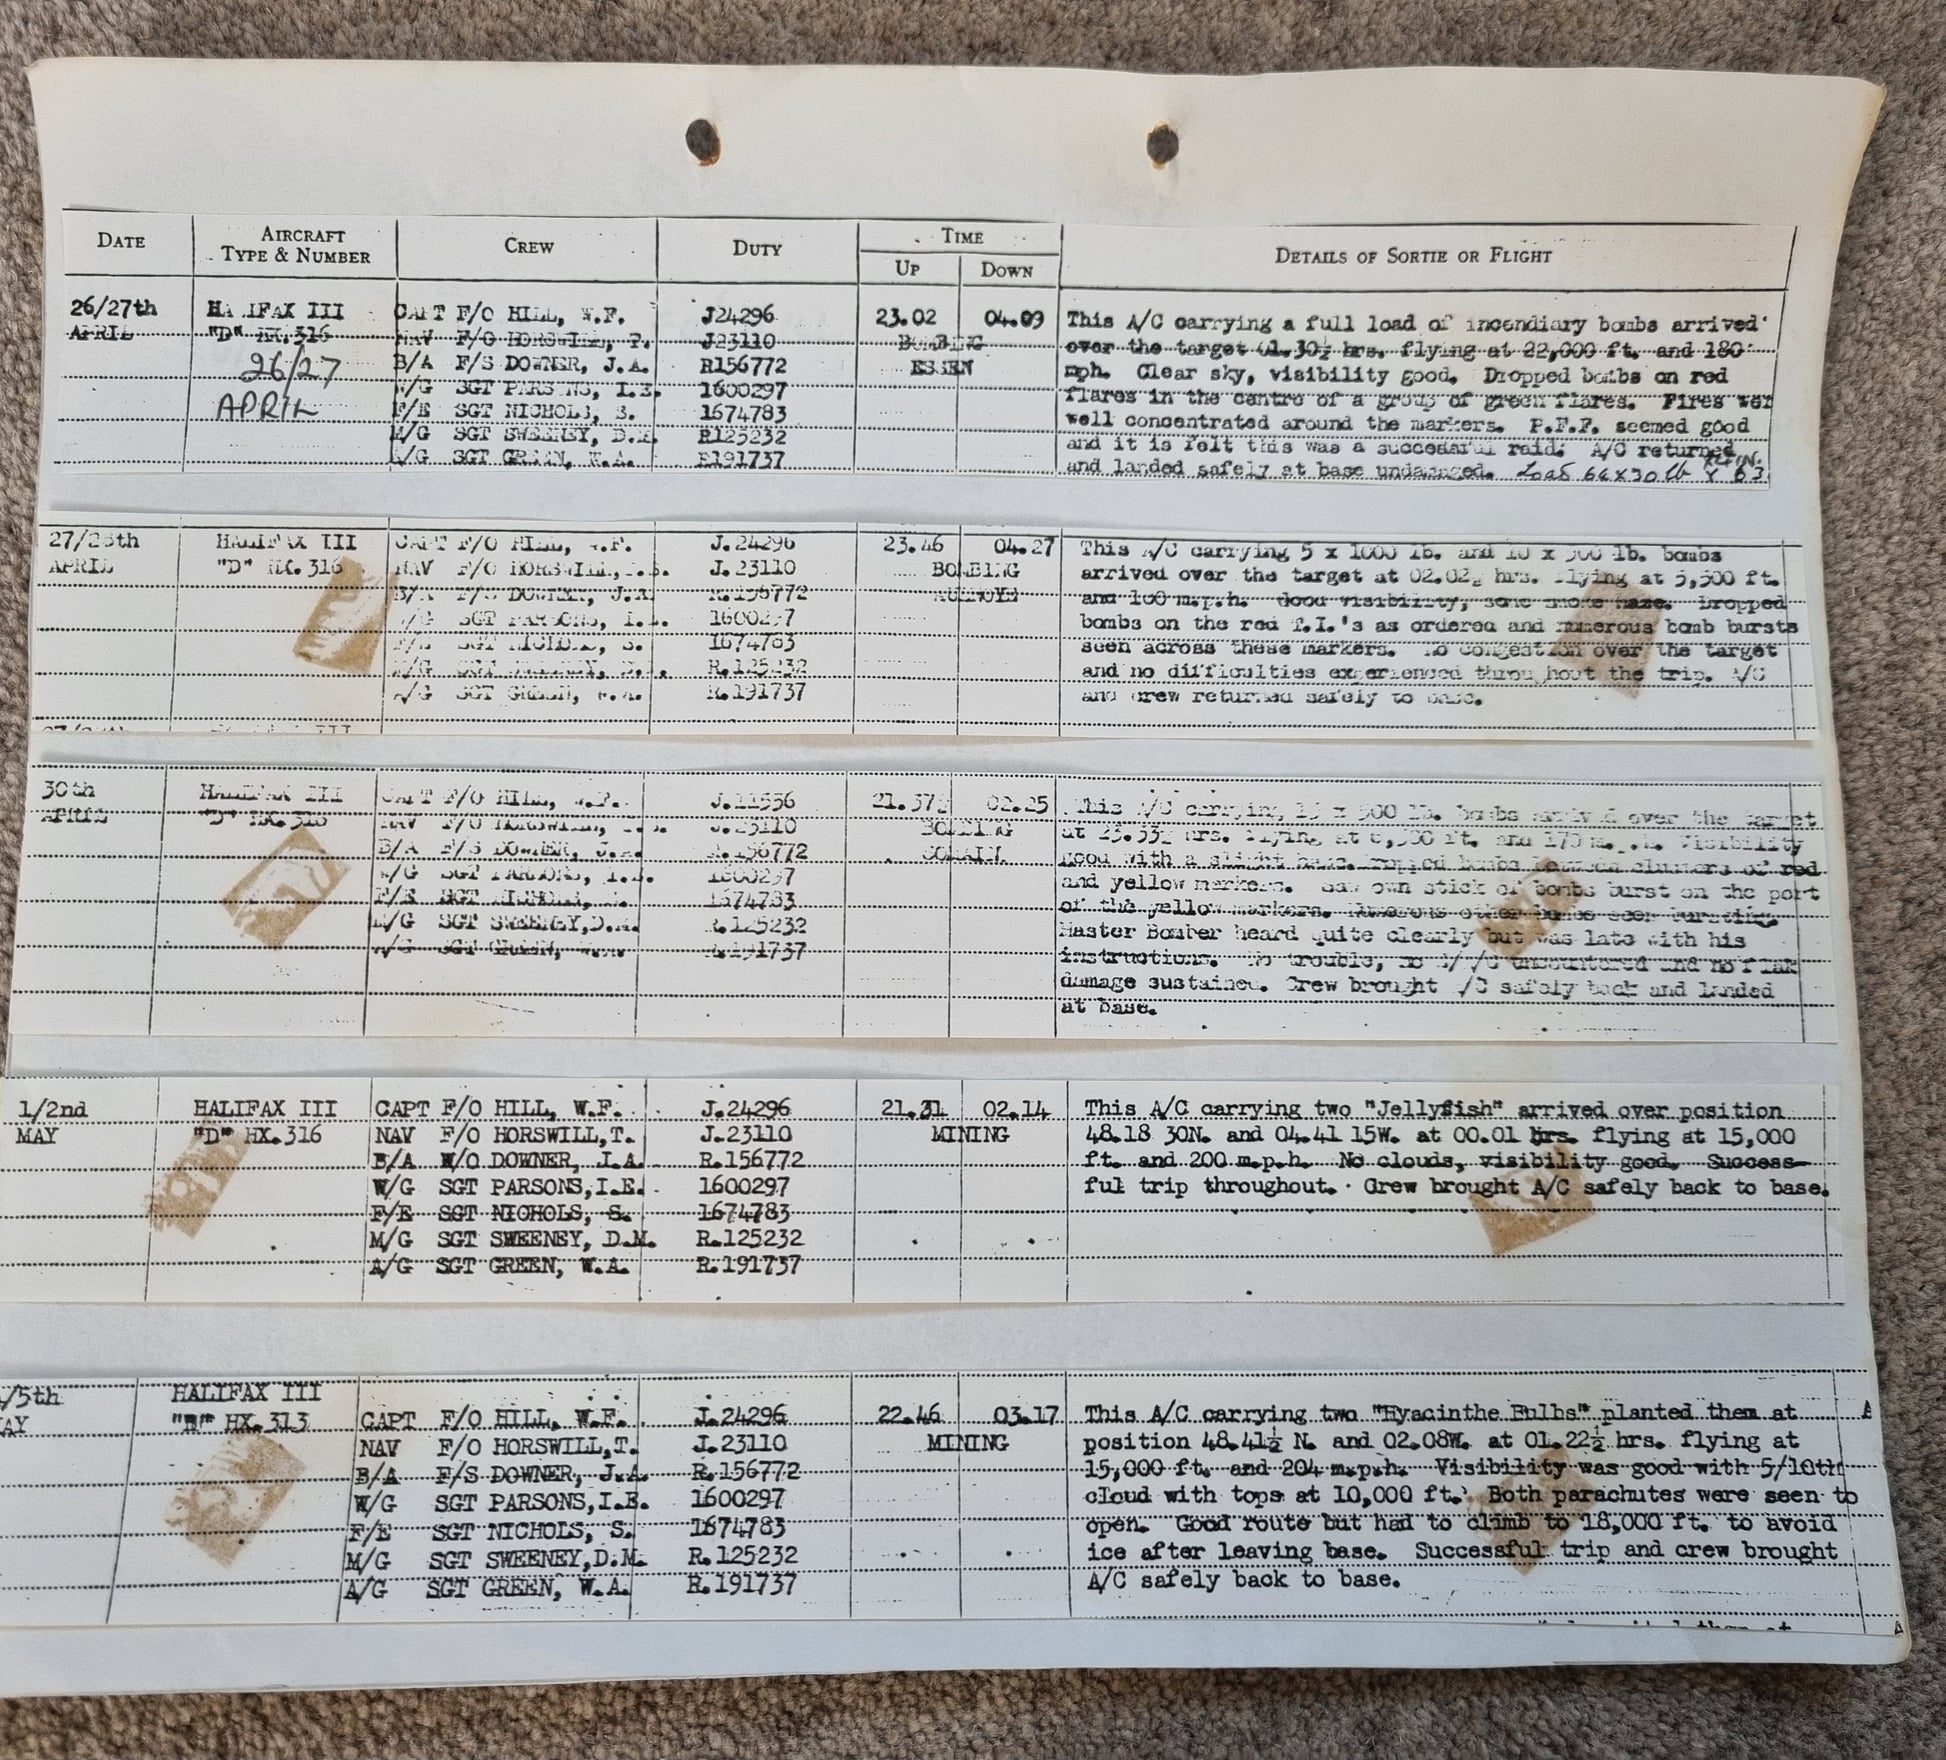 DATE AIRCRAFT TYPE & NUMBER CREW DUTY TIME UP DOWN DETAILS OF SORTIE OR FLIGHT
26/27th HALIFAX III CAPT F/O HILL, W.F. J24296 23.02 04.09 This A/C carrying a full load of incendiary bombs arrived
APRIL "D" HX.316 NAV F/O HORSWILL, T. J23110 BOMBING over the target 01.30½ hrs. flying at 22,000 ft. and 180
26/27 B/A F/S DOWNER, J.A. R156772 ESSEN mph. Clear sky, visibility good. Dropped bombs on red
APRIL W/G SGT PARSONS, I.E. 1600297 flares in the centre of a group of green flares. Fires wer
F/E SGT NICHOLS, S. 1674783 well concentrated around the markers. P.F.F. seemed good
M/G SGT SWEENEY, D.M. R125232 and it is felt this was a successful raid. A/C returned
A/G SGT GREEN, W.A. R191737 and landed safely at base undamaged. Load 64x30 lb
27/28th HALIFAX III CAPT F/O HILL, W.F. J.24296 23.46 04.27 This A/C carrying 5 x 1000 lb. and 10 x 500 lb. bombs
APRIL "D" HX.316 NAV F/O HORSWILL, J.23110 BOMBING arrived over the target at 02.02½ hrs. flying at 5,500 ft.
B/A F/S DOWNER, J.A. R.156772 AULNOYE and 160 m.p.h. Good visibility, some smoke haze. Dropped
W/G SGT PARSONS, I.E. 1600297 bombs on the red T.I.'s as ordered and numerous bomb bursts
F/E SGT NICHOLS, S. 1674783 seen across these markers. No congestion over the target
M/G SGT SWEENEY, D.M. R.125232 and no difficulties experienced throughout the trip. A/C
A/G SGT GREEN, W.A. R.191737 and crew returned safely to base.
30th HALIFAX III CAPT F/O HILL, W.F. 21.37½ 02.25 This A/C carrying 15 x 500 lb. bombs arrived over the target
APRIL "D" HX.316 NAV F/O HORSWILL, J.23110 BOMBING at 23.33½ hrs. flying at ft. and 170 m.p.h. Visibility
B/A F/S DOWNER, J.A. R.156772 SOMAIN good with a slight haze. Dropped bombs between clusters of red
W/G SGT PARSONS, I.E. 1600297 and yellow markers. Saw own stick of bombs burst on the port
F/E SGT NICHOLS, 1674783 of the yellow markers. Numerous other bombs seen bursting.
M/G SGT SWEENEY, D.M. R.125232 Master Bomber heard quite clearly but was late with his
A/G SGT GREEN, W.A. R.191737 instructions. No trouble, no E/A/C encountered and no flak
damage sustained. Crew brought A/C safely back and landed
at base.
1/2nd HALIFAX III CAPT F/O HILL, W.F. J.24296 21.31 02.14 This A/C carrying two "Jellyfish" arrived over position
MAY "D" HX.316 NAV F/O HORSWILL,T. J.23110 MINING 48.18 30N. and 04.41 15W. at 00.01 hrs. flying at 15,000
B/A W/O DOWNER, J.A. R.156772 ft. and 200 m.p.h. No clouds, visibility good. Success-
W/G SGT PARSONS,I.E. 1600297 ful trip throughout. Crew brought A/C safely back to base.
F/E SGT NICHOLS, S. 1674783
M/G SGT SWEENEY, D.M. R.125232
A/G SGT GREEN, W.A. R.191737
/5th HALIFAX III
AY HX.313 CAPT F/O HILL, W.F. J.24296 22.46 03.17 This A/C carrying two "Hyacinthe Bulbs" planted them at
NAV F/O HORSWILL,T. J.23110 MINING position 48.41½ N. and 02.08W. at 01.22½ hrs. flying at
B/A F/S DOWNER, J.A. R.156772 15,000 ft. and 204 m.p.h. Visibility was good with 5/10th
W/G SGT PARSONS,I.E. 1600297 cloud with tops at 10,000 ft. Both parachutes were seen to
F/E SGT NICHOLS, S. 1674783 open. Good route but had to climb to 18,000 ft. to avoid
M/G SGT SWEENEY,D.M. R.125232 ice after leaving base. Successful trip and crew brought
A/G SGT GREEN, W.A. R.191737 A/C safely back to base.